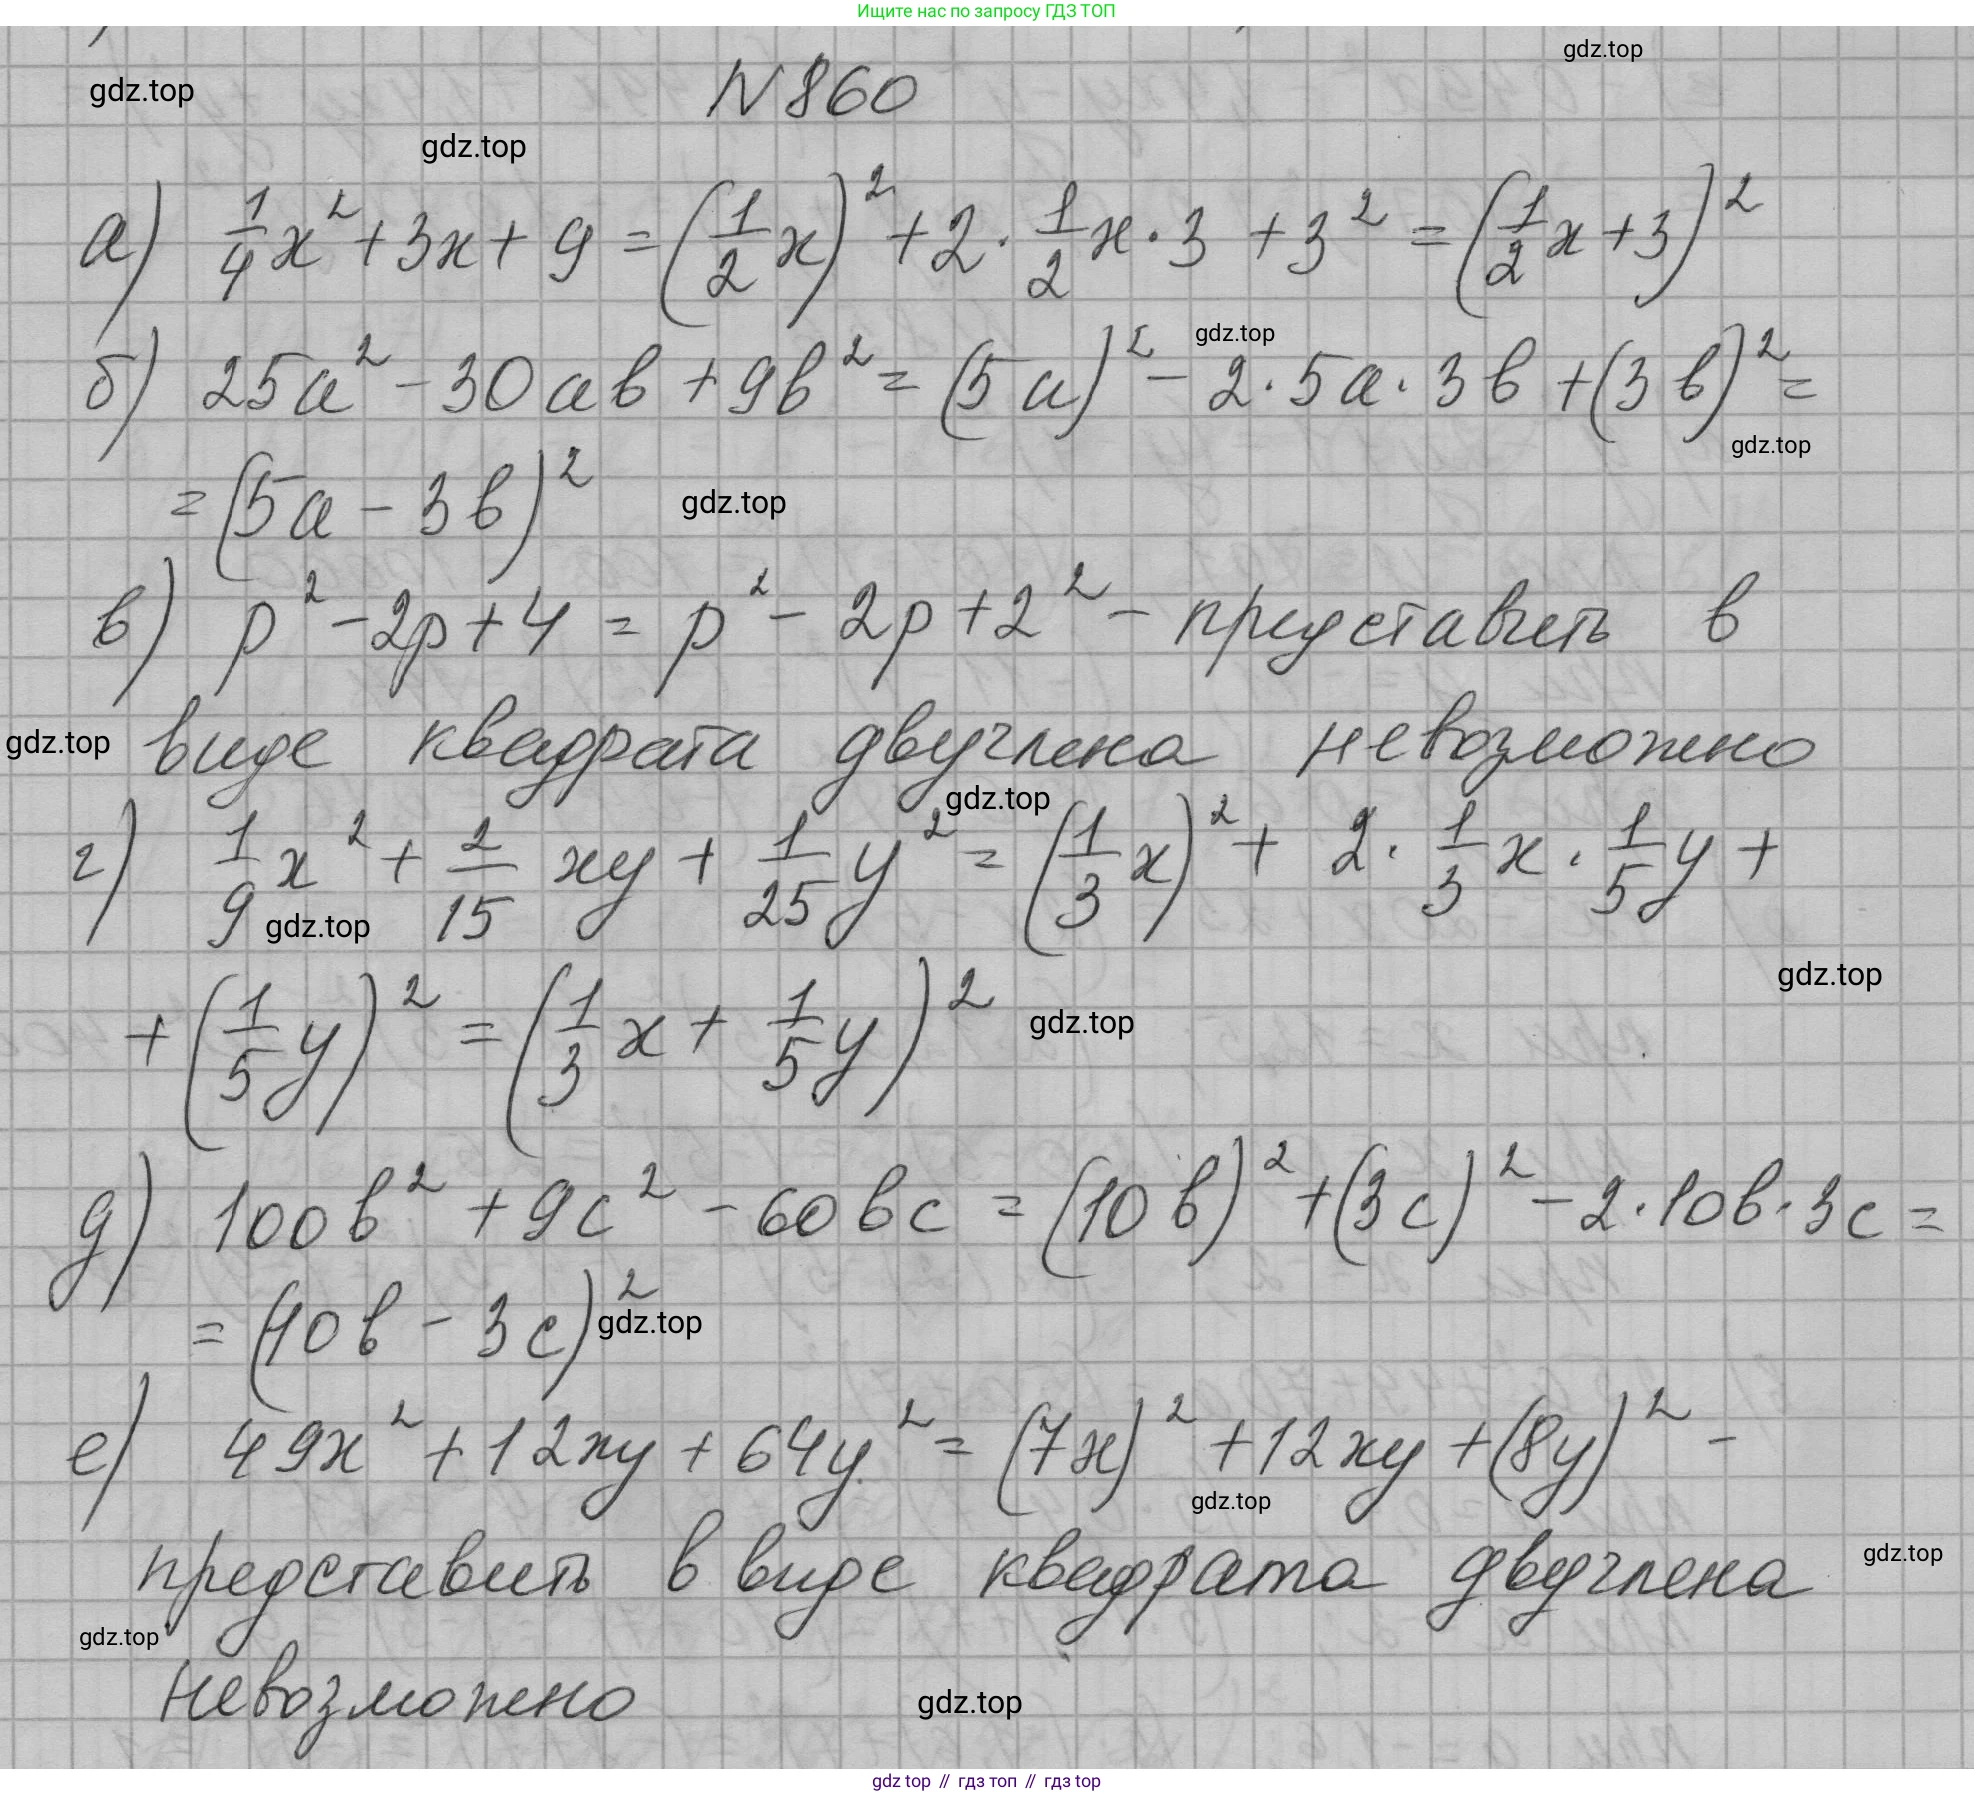 Ищите нас по запросу ГДЗ ТОП
gdz.top
gdz.top
N 860
gdz.top
а) 1/4 x² + 3x + 9 = (1/2 x)² + 2 · 1/2 x · 3 + 3² = (1/2 x + 3)²
gdz.top
б) 25a² - 30ab + 9b² = (5a)² - 2 · 5a · 3b + (3b)² =
gdz.top
= (5a - 3b)²
gdz.top
в) p² - 2p + 4 = p² - 2p + 2² - представить в
gdz.top
виде квадрата двучлена невозможно
gdz.top
г) 1/9 x² + 2/15 xy + 1/25 y² = (1/3 x)² + 2 · 1/3 x · 1/5 y +
gdz.top
gdz.top
+ (1/5 y)² = (1/3 x + 1/5 y)²
gdz.top
д) 100b² + 9c² - 60bc = (10b)² + (3c)² - 2 · 10b · 3c =
= (10b - 3c)²
gdz.top
е) 49x² + 12xy + 64y² = (7x)² + 12xy + (8y)² -
gdz.top
gdz.top
представить в виде квадрата двучлена
gdz.top
невозможно
gdz.top
gdz top // гдз топ // гдз top